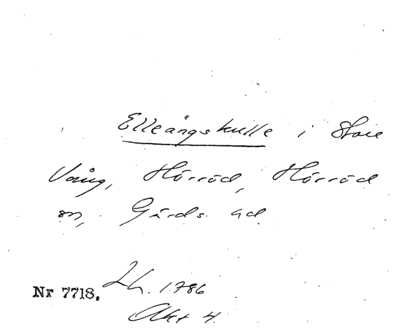 Elleängskulle i Store
Vång, Hörröd, Hörröd
sn, Gärds hd
Lh. 1786
Nr 7718.
Akt 4.